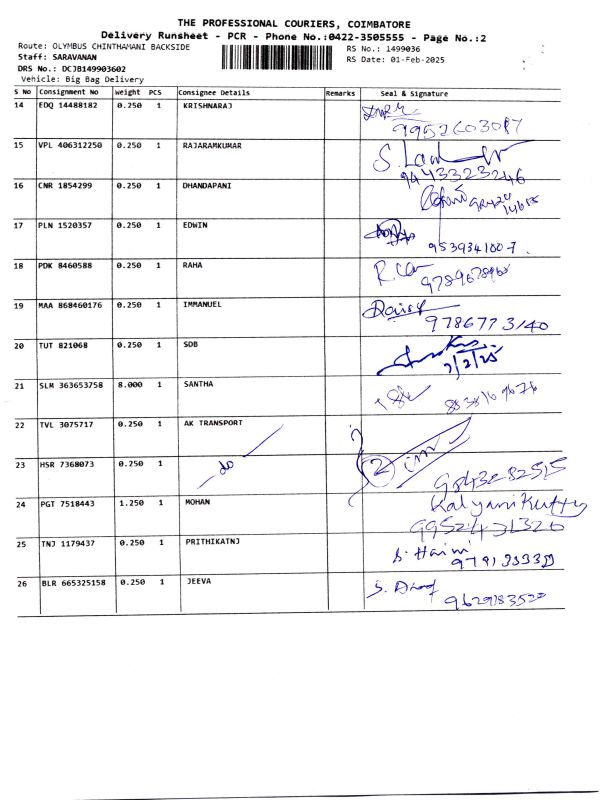 THE PROFESSIONAL COURIERS, COIMBATORE
Delivery Runsheet - PCR - Phone No.:0422-3505555 - Page No.:2
Route: OLYMBUS CHINTHAMANI BACKSIDE RS No.: 1499036
Staff: SARAVANAN RS Date: 01-Feb-2025
DRS No.: DCJB149903602
Vehicle: Big Bag Delivery
S No Consignment No Weight PCS Consignee Details Remarks Seal & Signature
14 EDQ 14488182 0.250 1 KRISHNARAJ
15 VPL 406312250 0.250 1 RAJARAMKUMAR
9443323246
16 CNR 1854299 0.250 1 DHANDAPANI
17 PLN 1520357 0.250 1 EDWIN
9539341007
18 PDK 8460588 0.250 1 RAHA
19 MAA 868460176 0.250 1 IMMANUEL
9786773140
20 TUT 821068 0.250 1 SDB
21 SLM 363653758 8.000 1 SANTHA
22 TVL 3075717 0.250 1 AK TRANSPORT
23 HSR 7368073 0.250 1 do 2
24 PGT 7518443 1.250 1 MOHAN Kalyanikutty
9952431320
25 TNJ 1179437 0.250 1 PRITHIKATNJ
26 BLR 665325158 0.250 1 JEEVA